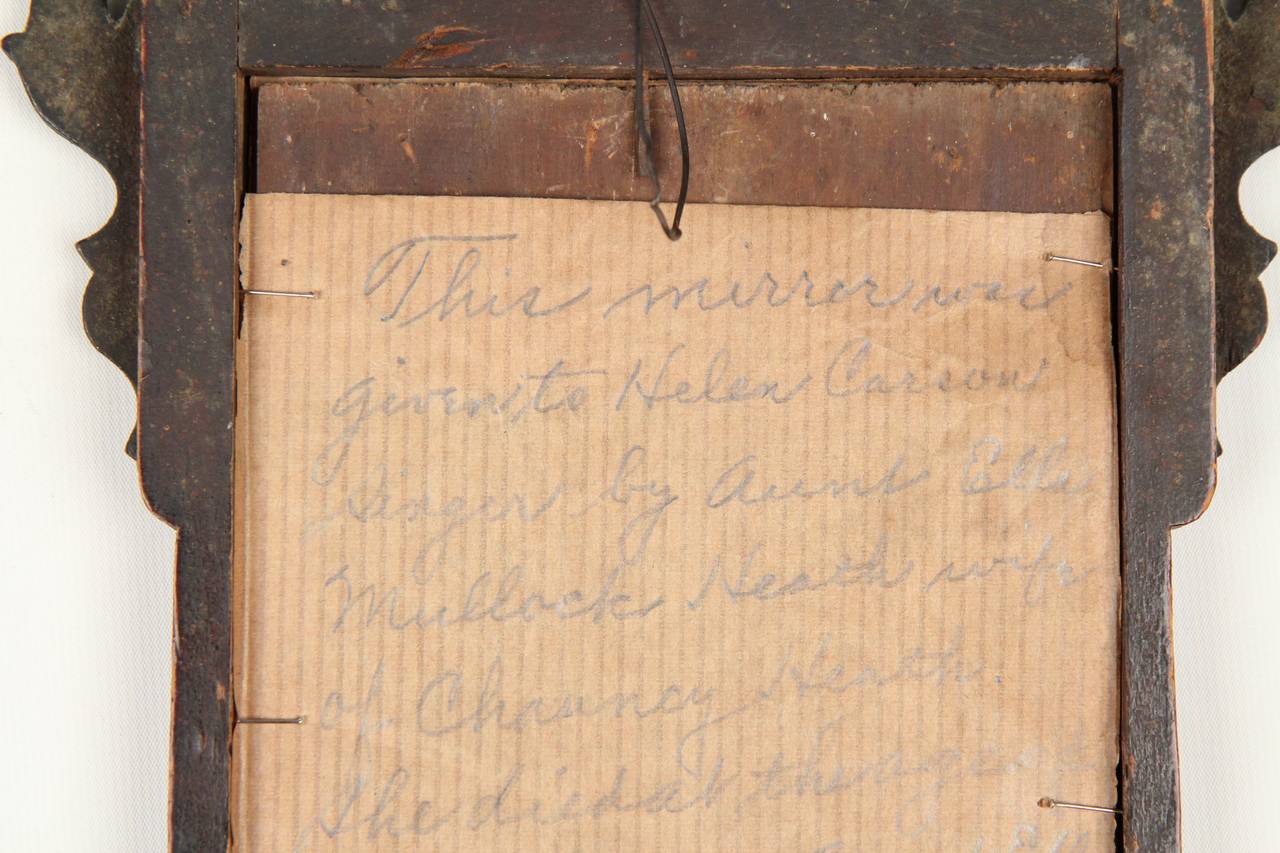 This mirror was
given to Helen Carson
Singer by Aunt Ella
Mullock Heath wife
of Chauncy Heath.
She died at the age of